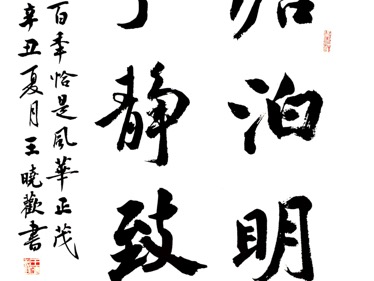 泊明
静致
百年恰是风華正茂
辛丑夏月王晓歡書